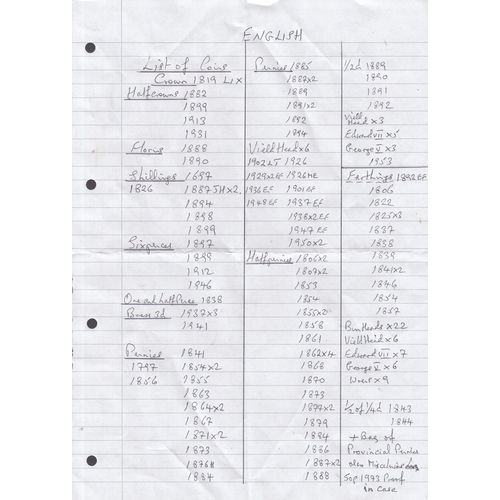 ENGLISH
List of Coins
Crown 1819 LIX
Halfcrowns 1882
1899
1913
1931
Florins 1888
1890
Shillings 1697
1826 1887 JH x2
1894
1898
1899
Sixpences 1897
1899
1912
1946
One and half Pence 1838
Brass 3d 1937x3
1941
Pennies 1841
1797 1854x2
1856 1855
1863
1864x2
1867
1871x2
1873
1876H
1884
Pennies 1885
1887x2
1889
1891x2
1892
1894
Vield Head x6
1902LT 1926
1929x2EF 1926ME
1936EF 1901EF
1948EF 1937EF
1938x2EF
1947EF
1950x2
Halfpennies 1806x2
1807x2
1853
1854
1855x2
1858
1861
1862x4
1868
1870
1873
1877x2
1879
1884
1886
1887x2
1888
1/2d 1889
1890
1891
1892
Vield Head x3
Edward VII x5
George V x3
1953
Farthings 1892EF
1806
1822
1825x3
1837
1838
1839
1841x2
1846
1854
1857
Bun Heads x22
Vield Head x6
Edward VII x7
George V x6
Wrens x9
1/2 of 1/4d 1843
1844
+ Bag of
Provincial Pennies
50p 1973 Proof
in case